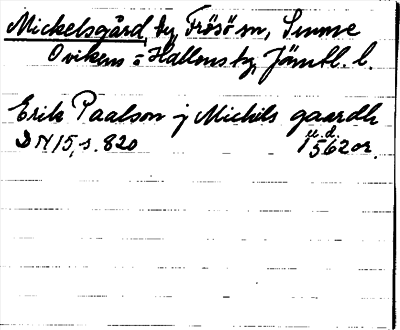 Mickelsgård, by, Frösö sn, Sunne
Ovikens o Hallens tg, Jämtl. l.
Erik Paalson j Michils gaardh
u.d.
DN 15, s. 820 1562 or.